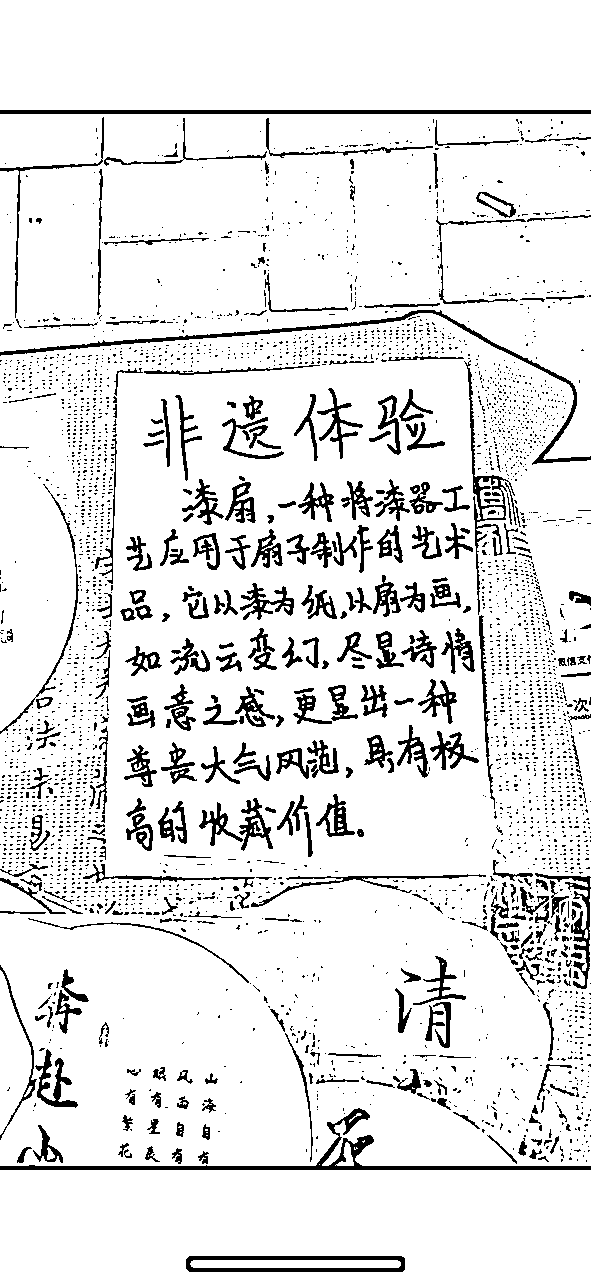 非遗体验
漆扇,一种将漆器工
艺应用于扇子制作的艺术
品,它以漆为纸,以扇为画,
如流云变幻,尽显诗情
画意之感,更显出一种
尊贵大气风范,具有极
高的收藏价值。
清
奔赴山
山海自有
风雨自有
眼有星辰
心有繁花
微信支付